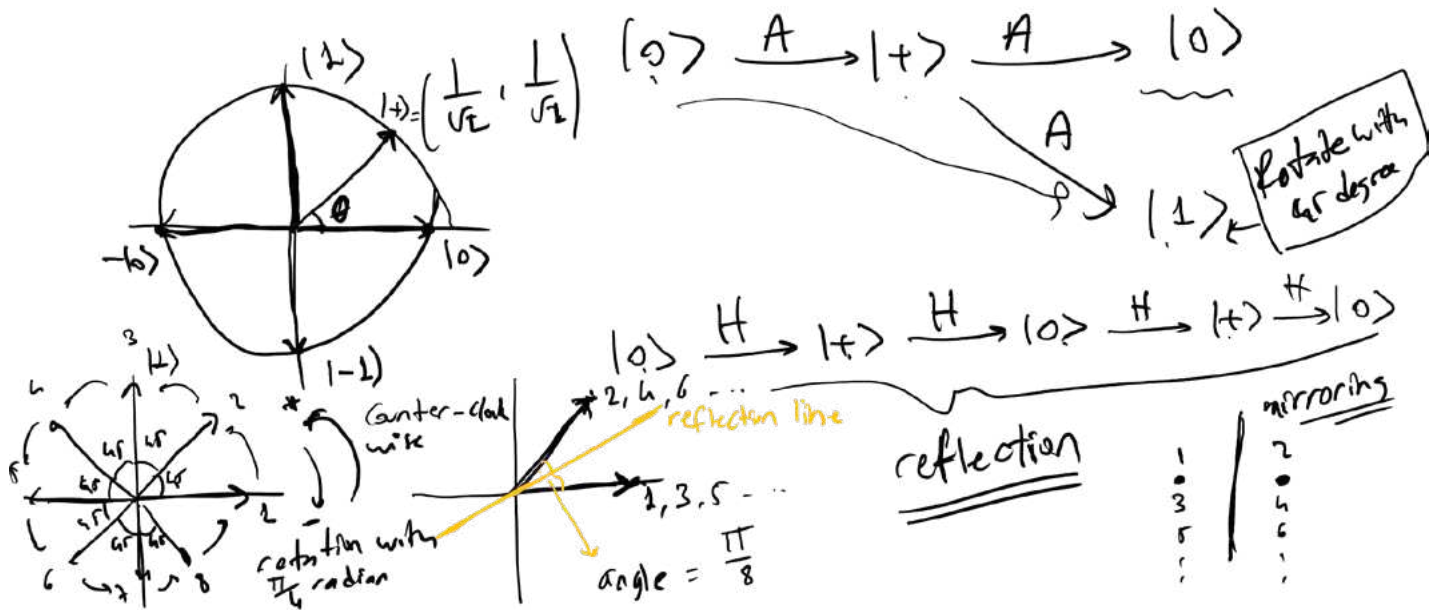 |1⟩
|+⟩ = (1/√2, 1/√2)
θ
-|0⟩
|0⟩
|-1⟩
|0⟩ A→ |+⟩ A→ |0⟩
A
|1⟩
Rotate with
45 degree
|0⟩ H→ |+⟩ H→ |0⟩ H→ |+⟩ H→ |0⟩
3
|1⟩
4
2
45 45
45 45
45
45 45
1
6
7
8
*
counter-clock
wise
rotation with
π/4 radian
2, 4, 6 ...
reflection line
1, 3, 5 ...
angle = π/8
reflection
mirroring
1 2
3 4
5 6
: :